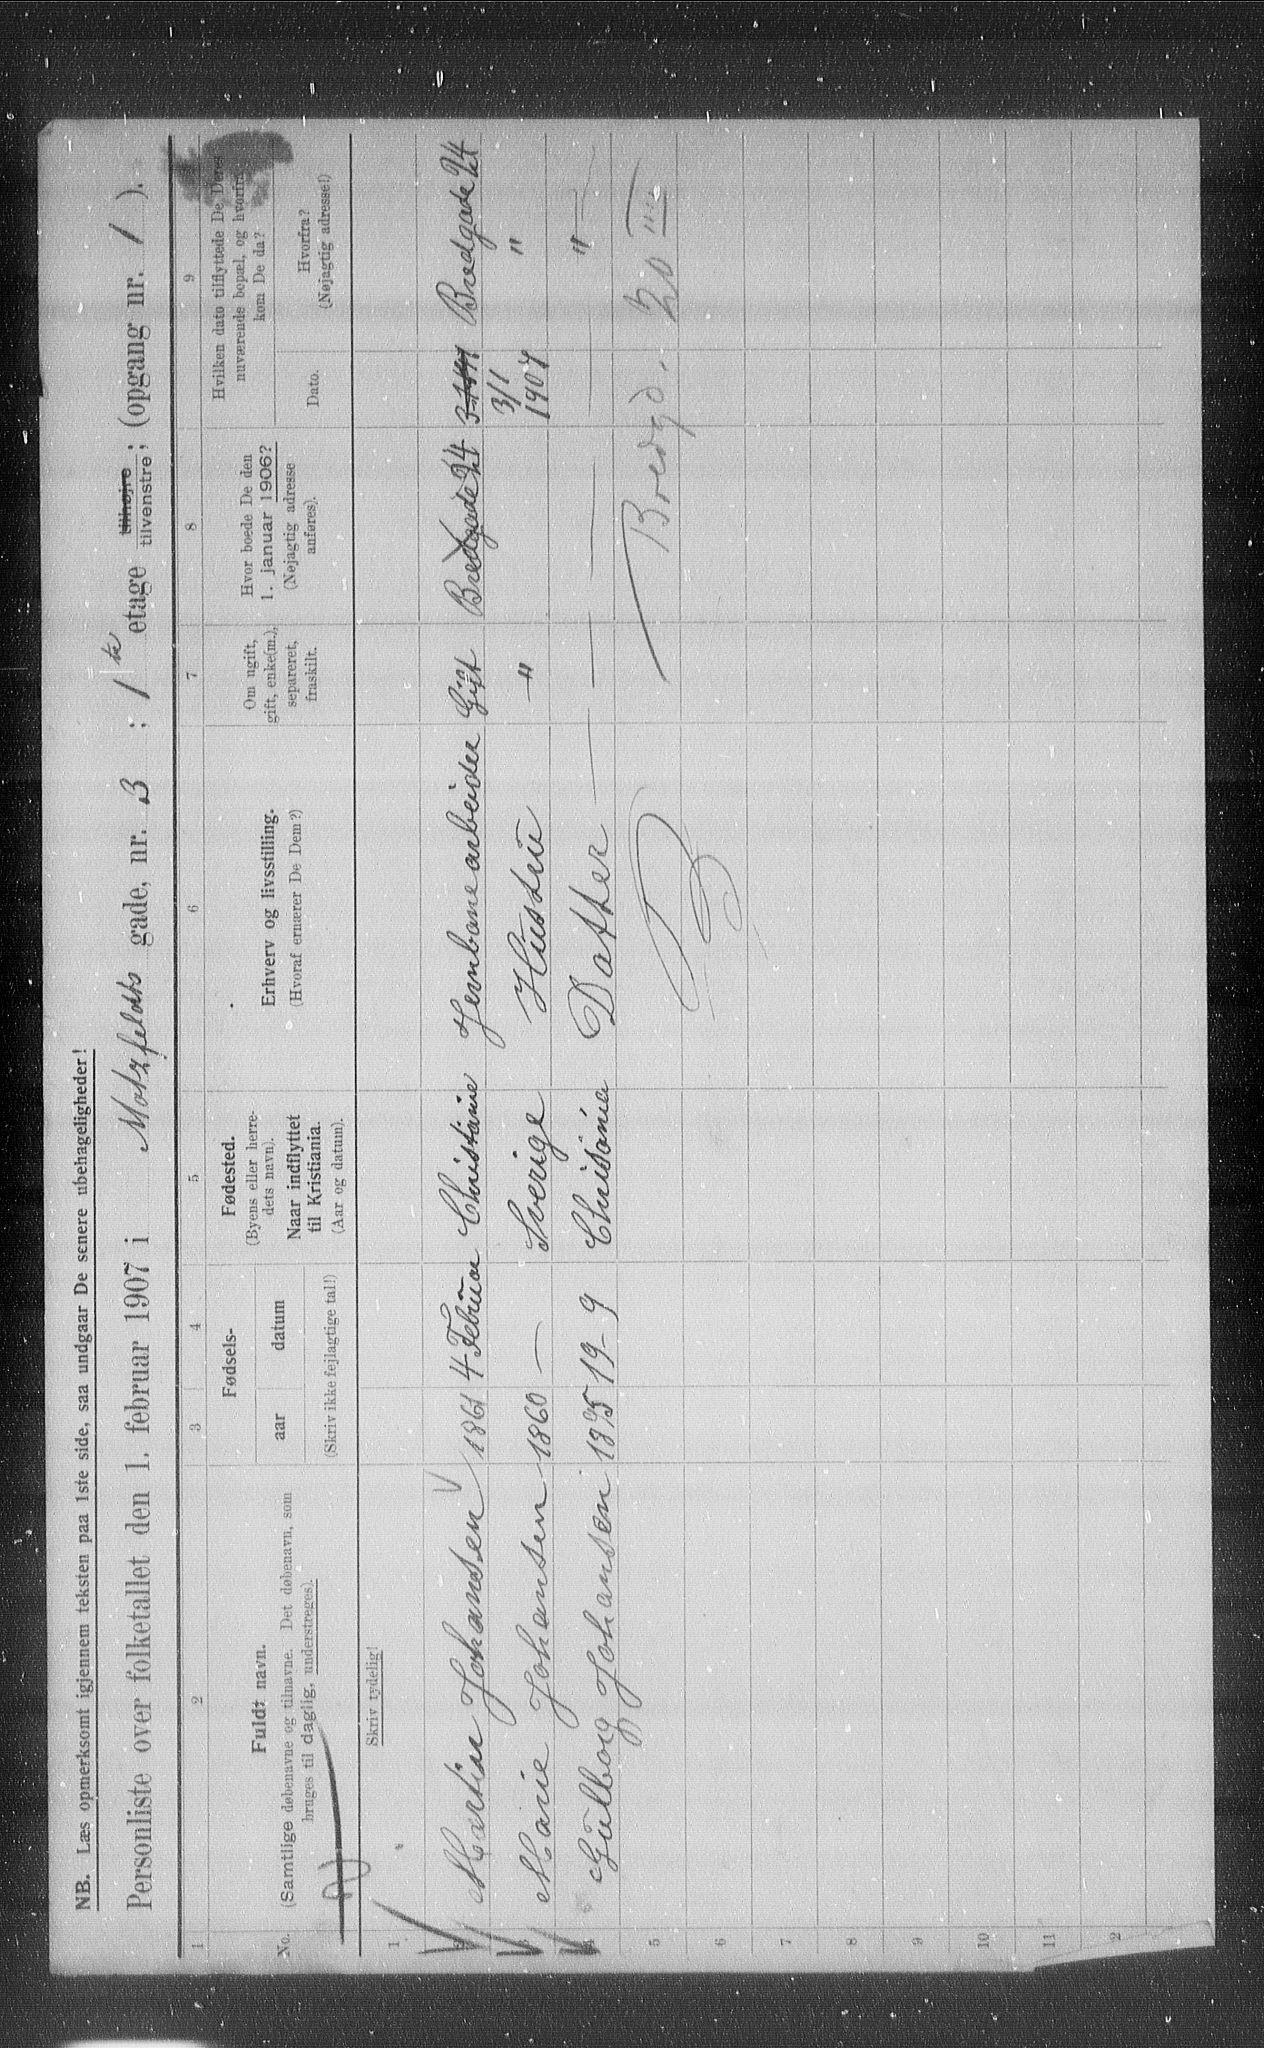 NB. Læs opmerksomt igjennem teksten paa 1ste side, saa undgaar De senere ubehageligheder!
Personliste over folketallet den 1. februar 1907 i Motzfeldts gade, nr. 3 ; 1 te etage tilhøjre tilvenstre; (opgang nr. 1 ).
1 2 3 4 5 6 7 8 9
No.
Fuldt navn.
(Samtlige døbenavne og tilnavne. Det døbenavn, som
bruges til daglig, understreges).
Fødsels-
aar datum
(Skriv ikke fejlagtige tal!)
Fødested.
(Byens eller herre-
dets navn).
Naar indflyttet
til Kristiania.
(Aar og datum).
Erhverv og livsstilling.
(Hvoraf ernærer De Dem?)
Om ugift,
gift, enke(m.),
separeret,
fraskilt.
Hvor boede De den
1. januar 1906?
(Nøjagtig adresse
anføres).
Hvilken dato tilflyttede De Deres
nuværende bopæl, og hvorfra
kom De da?
Dato.
Hvorfra?
(Nøjagtig adresse!)
Skriv tydelig!
1
2 Martin Johansen 1861 4 Februar Christiania Jernbanearbeider Gift Bredgade 24 Bredgade 24
3 Marie Johansen 1860 — Sverige Hustru " 3/1 1907 "
4 Gulborg Johansen 1895 19-9 Chrisania Datter — — — "
5 Bredgd. 20 III
6
7
8
9
10
11
2